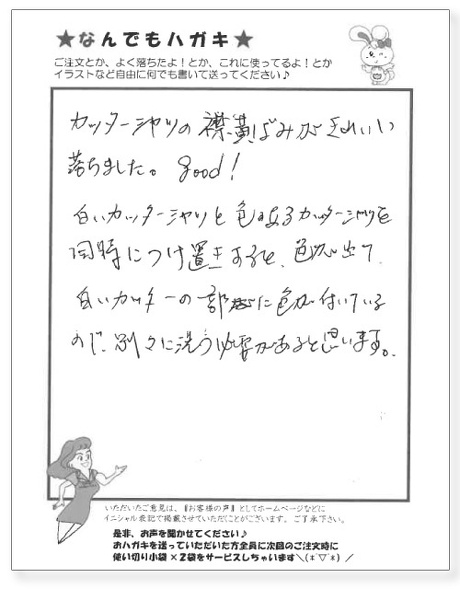 ★なんでもハガキ★
ご注文とか、よく落ちたよ！とか、これに使ってるよ！とか
イラストなど自由に何でも書いて送ってください♪
カッターシャツの襟黄ばみがきれいに
落ちました。good!
白いカッターシャツと色のあるカッターシャツを
同時につけ置きすると、色が出て、
白いカッターの一部に色が付いている
ので、別々に洗う必要があると思います。
いただいたご意見は、『お客様の声』としてホームページなどに
イニシャル表記で掲載させていただくことがございます。ご了承下さい。
是非、お声を聞かせてください♪
おハガキを送っていただいた方全員に次回のご注文時に
使い切り小袋×2袋をサービスしちゃいます＼(*´▽`*)／